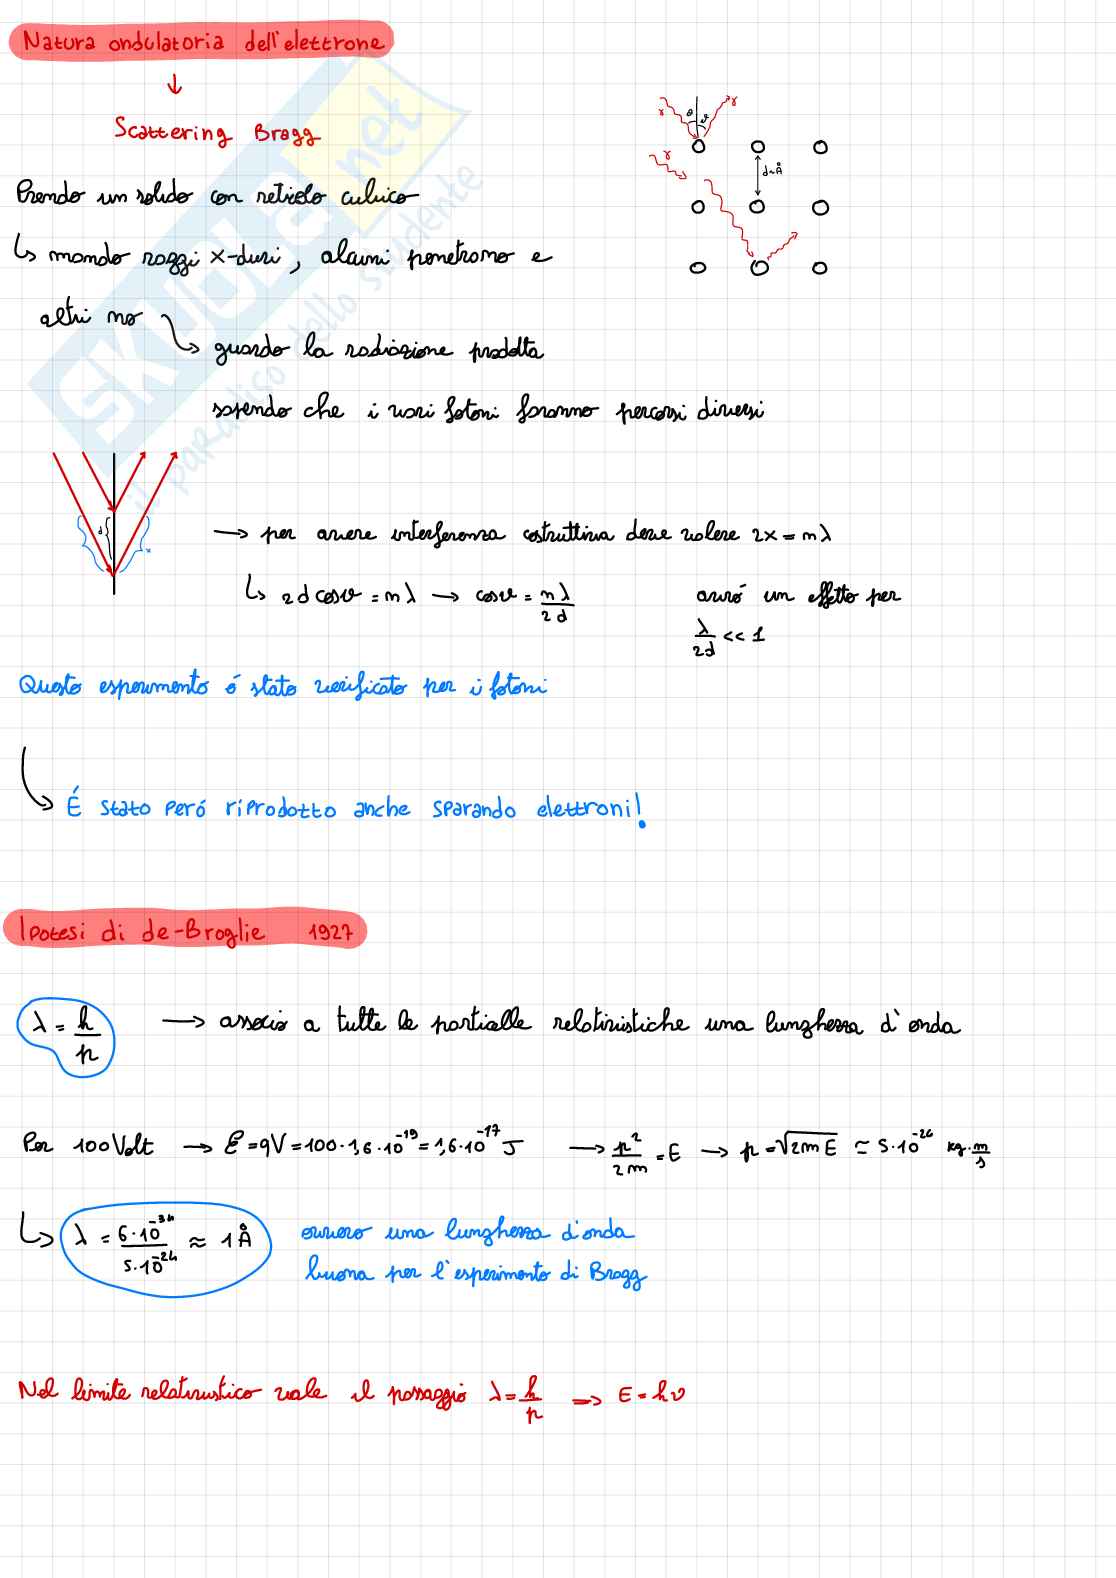 Natura ondulatoria dell'elettrone
↓
Scattering Bragg
Prendo un solido con reticolo cubico
↳ mando raggi x-duri, alcuni penetrano e
altri no
↳ guardo la radiazione prodotta
sapendo che i vari fotoni faranno percorsi diversi
γ θ θ γ
γ
d~Å
d x
→ per avere interferenza costruttiva deve valere 2x = mλ
↳ 2d cosθ = mλ → cosθ = mλ/2d
avró un effetto per
λ/2d << 1
Questo esperimento é stato verificato per i fotoni
↳ É stato peró riprodotto anche sparando elettroni!
Ipotesi di de-Broglie 1927
λ = h/p → associo a tutte le particelle relativistiche una lunghezza d'onda
Per 100 Volt → E = qV = 100·1,6·10⁻¹⁹ = 1,6·10⁻¹⁷ J → p²/2m = E → p = √2mE ≃ 5·10⁻²⁴ kg·m/s
↳ λ = 6·10⁻³⁴/5·10⁻²⁴ ≈ 1 Å
ovvero una lunghezza d'onda
buona per l'esperimento di Bragg
Nel limite relativistico vale il passaggio λ = h/p → E = hν
SKUOLA.net
il paradiso dello studente